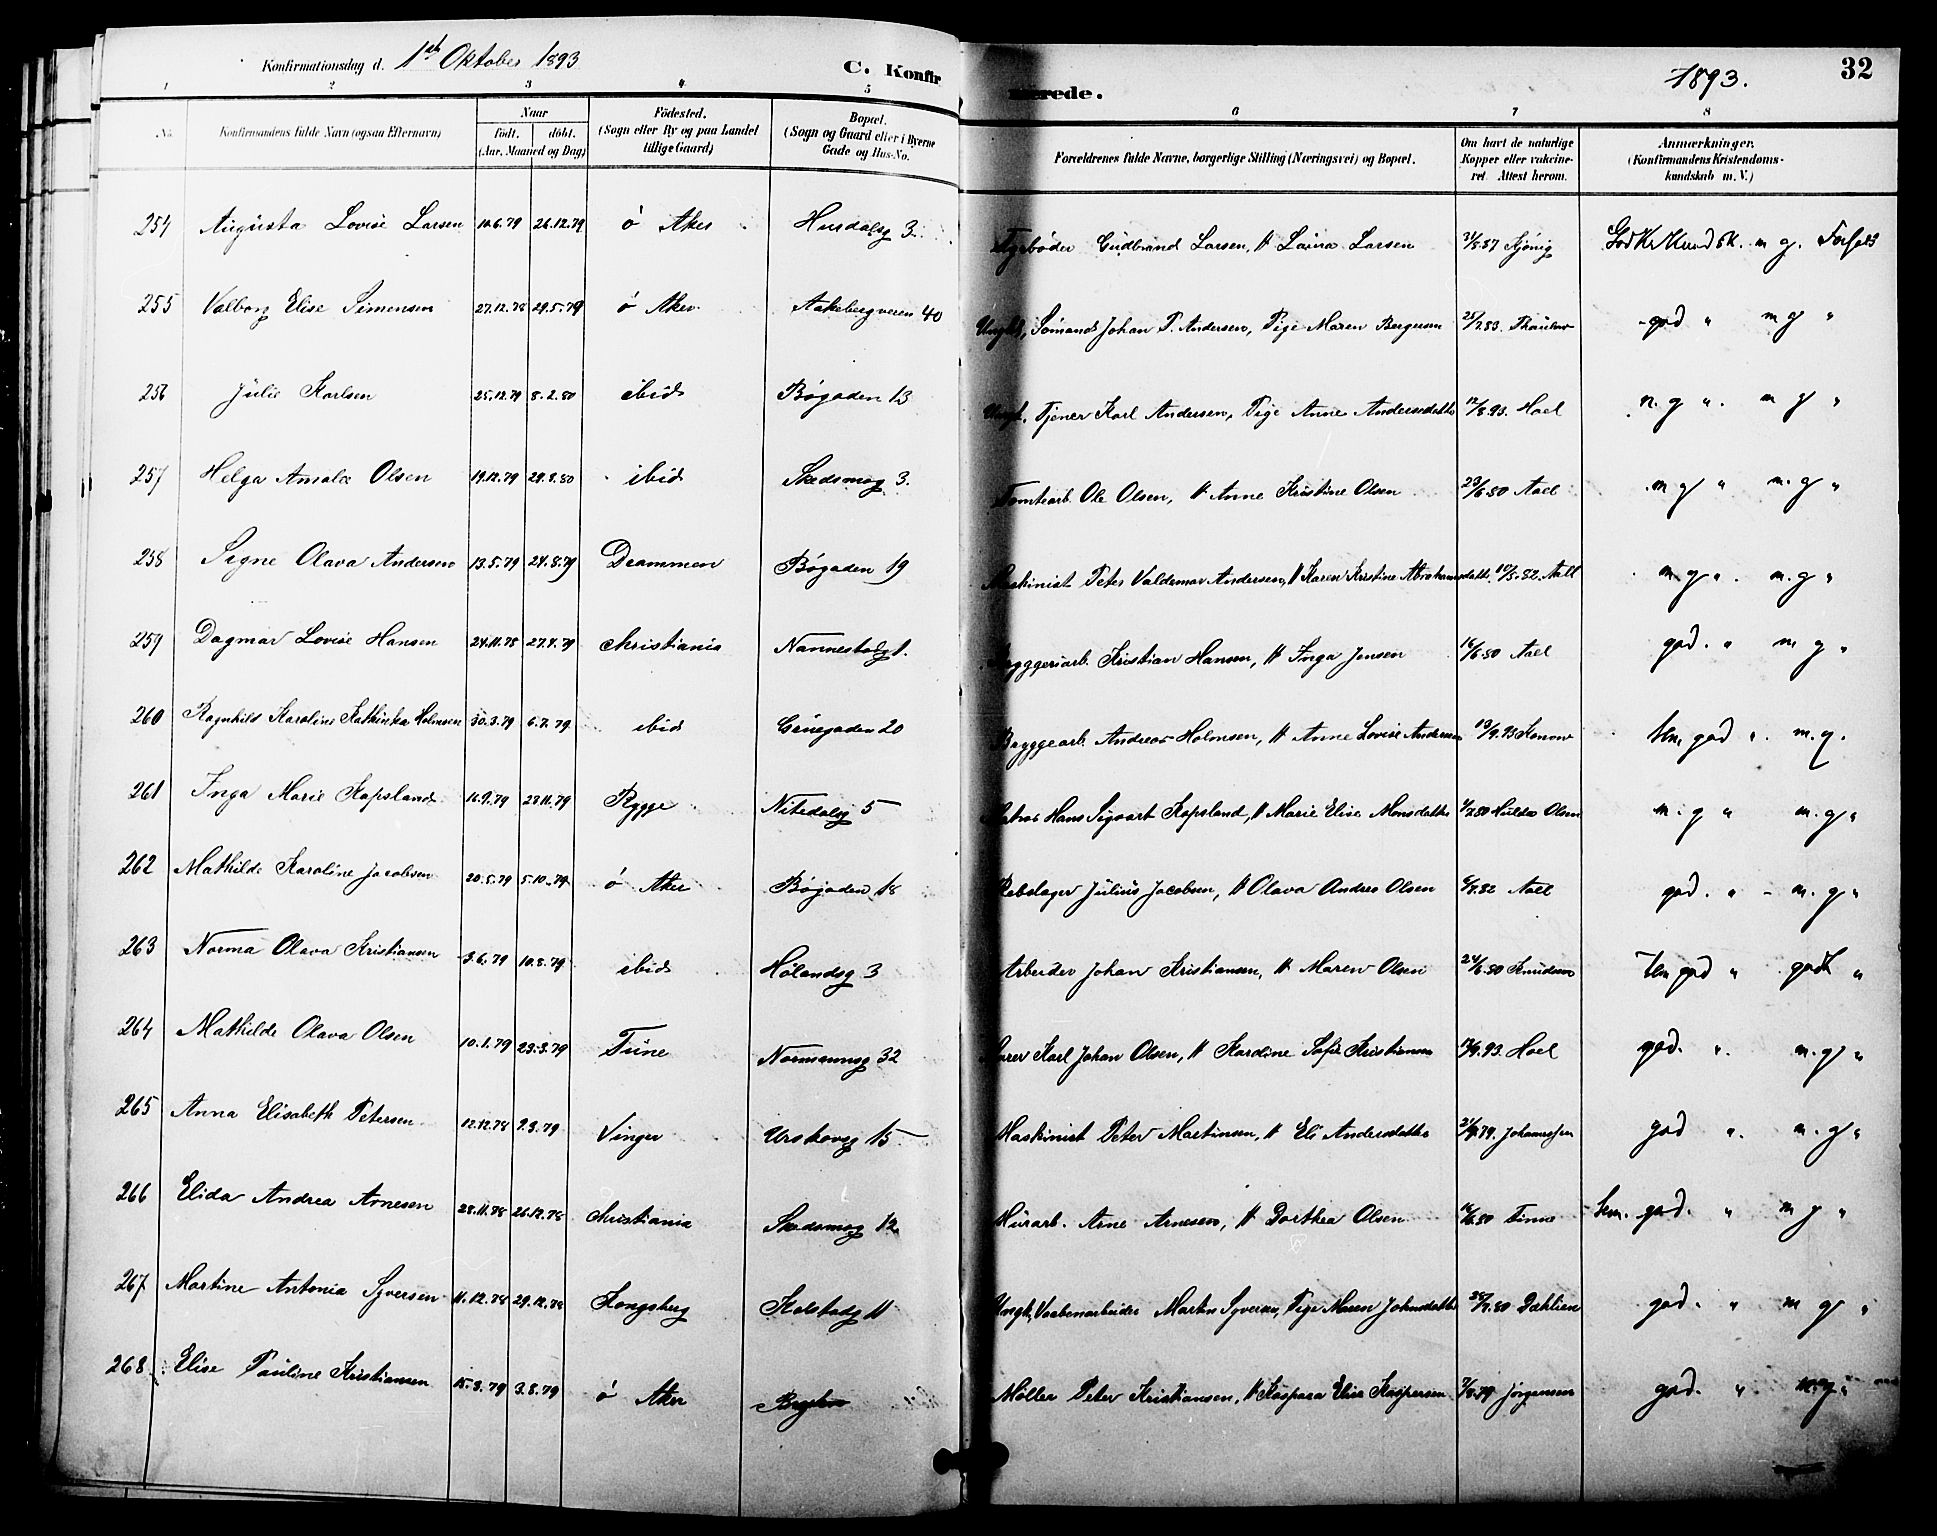 Konfirmationsdag d. 1ste Oktober 1893 C. Konfirmerede. 1893. 32
1 2 3 4 5 6 7 8
No. Konfirmandens fulde Navn (ogsaa Efternavn)
Naar
födt. döbt.
(Aar, Maaned og Dag)
Födested.
(Sogn eller By og paa Landet
tillige Gaard)
Bopæl.
(Sogn og Gaard eller i Byerne
Gade og Hus-No.
Forældrenes fulde Navne, borgerlige Stilling (Næringsvei) og Bopæl.
Om havt de naturlige
Kopper eller vakcine-
ret. Attest herom.
Anmærkninger.
(Konfirmandens Kristendoms-
kundskab m. V.)
254 Augusta Lovise Larsen 10.6.79 26.12.79 ö Aker Husdalsg 3. Fyrbøder Gudbrand Larsen, H Laura Larsen 21/8.87 God Kr Kundsk. m g. Forhold
255 Valborg Elise Simensen 27.12.78 29.5.79 ö Aker Aakebergveien 40 Ungk, Sömand Johan P. Andersen, Pige Maren Bergersen 25/2.83. Thaulow god " m g "
256 Julie Karlsen 25.12.79 8.2.80 ibid Bøgaden 13 Ungk. Tjener Karl Andersen, Pige Anne Andersdatter 12/8.93. Hoel n. g ". m g "
257 Helga Amalie Olsen 19.12.79 29.8.80 ibid Skedsmog 3. Tomtearb. Ole Olsen, H Anne Kristine Olsen 23/6.80 Aall m g " m. g "
258 Signe Olava Andersen 13.5.79 24.8.79 Drammen Bøgaden 19 Maskinist Peter Valdemar Andersen, H Karen Kristine Abrahamsdatt. 10/5.82. Aall m g ". m. g "
259 Dagmar Lovise Hansen 24.11.78 27.4.79 Christiania Nannestadg 1. Bryggeriarb. Kristian Hansen, H Inga Jensen 16/6.80 Aall god. " m g "
260 Ragnhild Karoline Kathinka Holmsen 30.3.79 6.7.79 ibid Grüegaden 20 Bryggearb. Andreas Holmsen, H Anne Lovise Andersen 13/9.93 Konow tem. god ". m. g.
261 Inga Marie Kapsland 16.9.79 28.11.79 Rygge Nitedalsg 5 Matros Hans Sigvart Kapsland, H Marie Elise Monsdatter 1/7.80 Hulda Olsen m. g " m. g "
262 Mathilde Karoline Jacobsen 20.5.79 5.10.79 ö Aker Bøgaden 18 Rebslager Julius Jacobsen, H Olava Andrea Olsen 6/7.82 Aall god. " m. g "
263 Norma Olava Kristiansen 3.6.79 10.8.79 ibid Hölandsg 3 Arbeider Johan Kristiansen, H Maren Olsen 24/6.80 Knudsen tem god " godt "
264 Mathilde Olava Olsen 10.1.79 23.3.79 Tune Normannsg 32 Murer Karl Johan Olsen, H Karoline Sofie Kristiansen 12/9.93. Hoel god. ". m. g "
265 Anna Elisabeth Petersen 12.12.78 9.3.79 Vinger Urskovsg 15 Maskinist Peter Martinsen, H Eli Andersdatter 21/9.79. god ". m. g "
266 Elida Andrea Arnesen 28.11.78 26.12.78 Christiania Skedsmog 12 Murarb. Arne Arnesen, H Dorthea Olsen 16/6.80 Tinne tem. god. " m g "
267 Martine Antonia Syversen 11.12.78 29.12.78 Kongsberg Kolstadg 11 Ungk, Vaabenarbeider Martin Syversen, Pige Maren Johnsdatter 28/7.80 Dæhlien god. " m g "
268. Elise Pauline Kristiansen 15.3.79 3.8.79 ö Aker Møller Peter Kristiansen, H Kaspara Elise Kaspersen 7/8.79 Jørgensen god. " m. g "